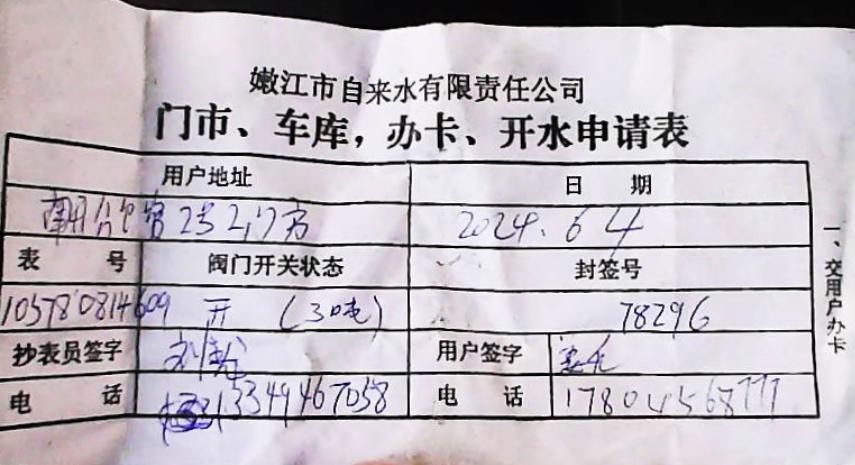 嫩江市自来水有限责任公司
门市、车库，办卡、开水申请表
用户地址 日 期
2024.6 4
表 号 阀门开关状态 封签号
105780814609 开 (30吨) 78296
抄表员签字 用户签字
电 话 13349467058 电 话 17804568777
一、交用户办卡